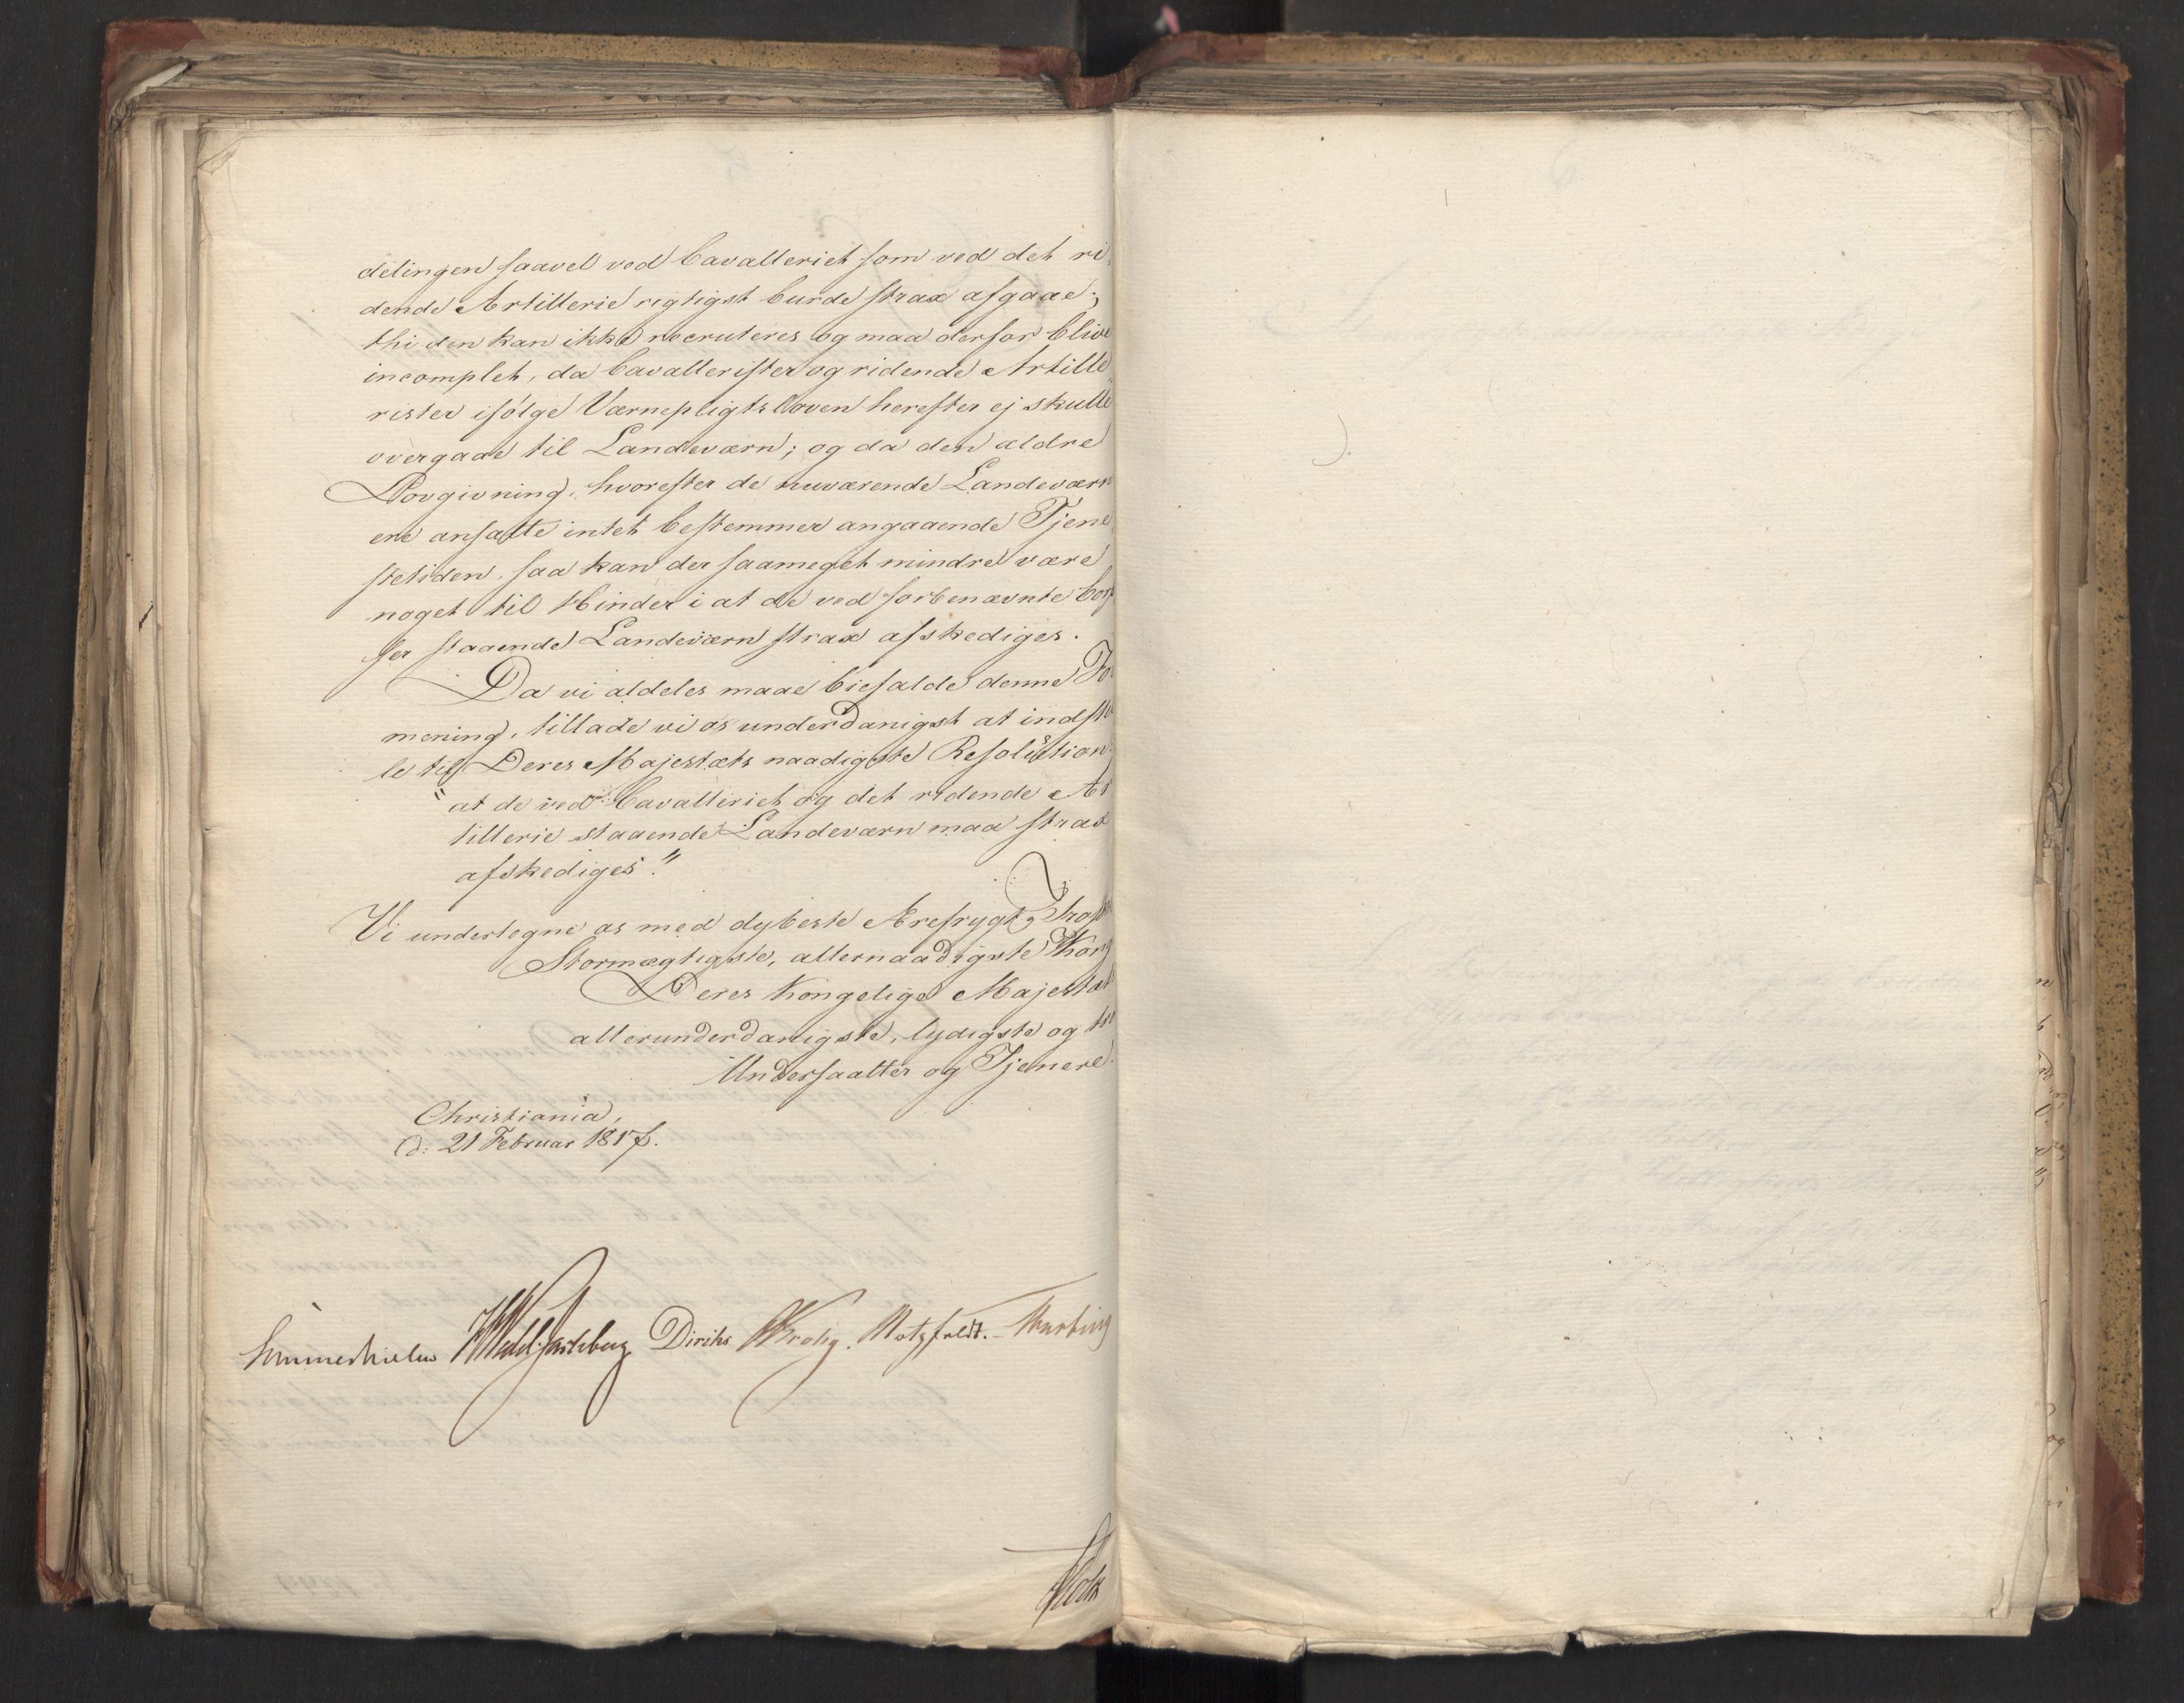 delingen saavel ved Cavalleriet som ved det ri
dende Artillerie rigtigst burde strax afgaae;
thi den kan ikke recruteres og maa derfor blive
incomplet, da Cavallerister og ridende Artille
rister ifølge Værnepligts Loven herefter ej skulle
overgaae til Landeværn; og da den ældre
Lovgivning, hvorefter de nuværende Landeværn
ere ansatte intet bestemmer angaaende Tjene
stetiden, saa kan der saameget mindre være
noget til Hinder i at de ved forbenævnte Corp
ser staaende Landeværn strax afskediges.
Da vi aldeles maae biefalde denne For
mening, tillade vi os underdanigst at indstil
le til Deres Majestæts naadigste Resolution:
"at de ved Cavalleriet og det ridende Ar
tillerie staaende Landeværn maa strax
afskediges."
Vi undertegne os med dybeste Ærefrygt,
Stormægtigste, allernaadigste Kong
Deres Kongelige Majestæt
allerunderdanigste, lydigste og tro
Undersaatter og Tjenere.
Christiania,
d: 21 Februar 1817.
Sommerhielm HWedel Jarlsberg Diriks Krohg. Motzfeldt.